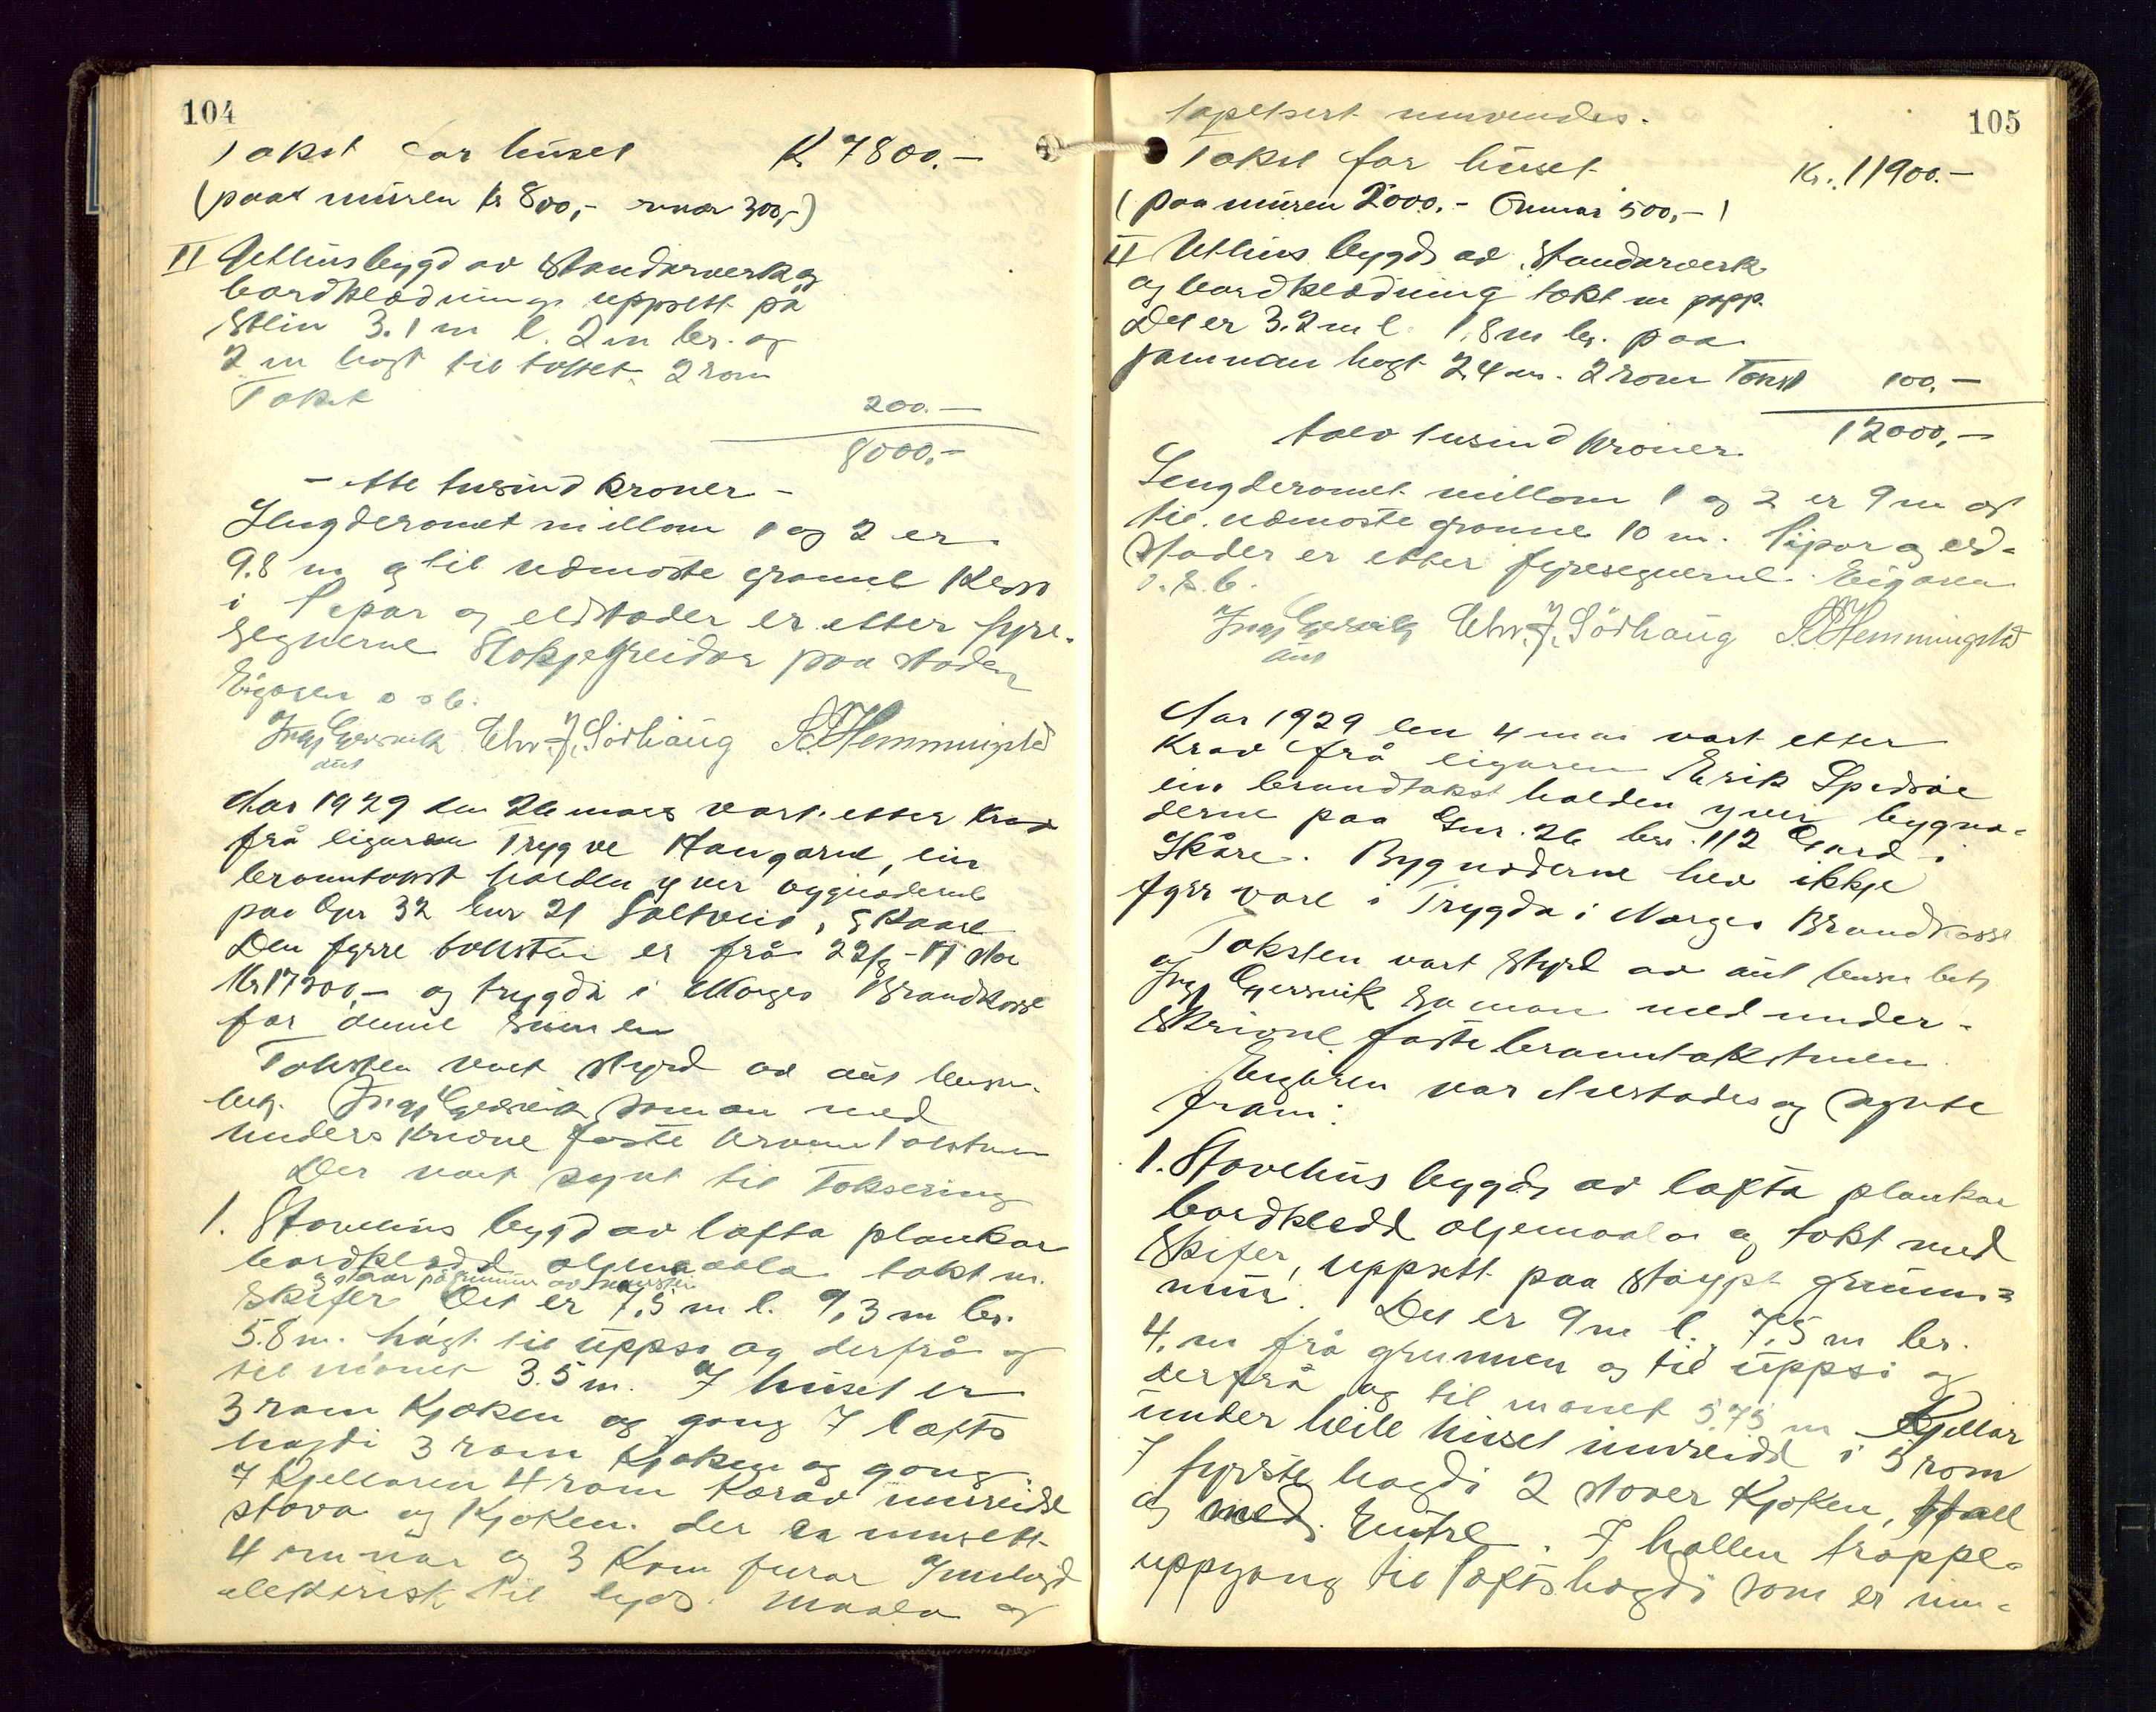 104
Takst for huset Kr 7800.-
(paa muren kr 800,- omnar 300,-)
II Uthus bygd av standarverk og
bordklædning uppsett på
Stein 3.1 m l. 2 m br. og
2 m høgt til toftet 2 rom
Takst 200.-
8000.-
- otte tusind kroner -
Lengderomet millom 1 og 2 er
9.8 m og til næmoste granne
i Pipar og eldstader er etter fyre-
segnerne paa staden
Eigaren o s b.
Ing. Gjersvik Chr. J. Sørhaug S. K. Hemmingstad
aut
Aar 1929 den 26 mars vart etter krav
frå eigaren Trygve Haugane, ein
branntakst halden yver bygnaderne
paa Gnr 32 bnr 21 Saltveit, Skaare
Den fyrre taksten er frå 22/8-17 stor
Kr 17200,- og trygda i Norges Brandkasse
for denne summen
Taksten vart styrd av aut lensm.
betj. Ing. Gjersvik saman med
underskrivne faste branntakstmen
Der vart synt til Taksering
1. Stovehus bygd av lafta plankar
bordklædd oljemaala takt m.
og staar på grunnmur av murstein
Skifer Det er 7,5 m l. 9,3 m br.
5.8 m. høgt til uppsi og derfrå og
til mønet 3.5 m. I huset er
3 rom Kjøken og gong I lofts
høgdi 3 rom Kjøken og gong.
I Kjellaren 4 rom Korav innreidde
stova og Kjøken. der er innsett
4 omnar og 3 Komfurar Innlagt
elektrisk til lys. Maala og
105
tapetsert innvendes.
Takst for huset Kr. 11900.-
(paa muren 2000.- Omnar 500,-)
II Uthus bygd av standarverk
og bordklædning tekt m papp.
Det er 3.2 m l. 1,8 m br. paa
jamnan høgt 2,4 m. 2 rom Takst 100.-
tolv tusind kroner 12000,-
Lengderomet millom 1 og 2 er 9 m og
til næmoste granne 10 m. Pipor og eld-
stader er etter fyresegnerne. Eigaren
o. s. b.
Ing. Gjersvik Chr. J. Sørhaug S. K. Hemmingstad
aut
Aar 1929 den 4 mai vart etter
Krav frå eigaren Erik Spedsøe
ein brandtakst halden yver bygna-
derne paa Gnr. 26 bnr. 112 Gard i
Skåre. Bygnaderne hev ikkje
fyrr vore i Trygda i Norges Brandkasse
Taksten vart styrd av aut lensm betj
og Ing. Gjersvik saman med under-
skrivne faste branntakstmen.
Eigaren var tilstades og synte
fram:
1. Stovehus bygd av lafta plankar
bordkledd oljemaala og tekt med
Skifer, uppsett paa støypt grunn-
mur. Det er 9 m l. 7,5 m br.
4, m frå grunnen og til uppsi og
derfrå og til mønet 5,75 m Kjellar
under heile huset innreidd i 3 rom
I fyrste høgdi 2 stover Kjøken, Hall
og med. Entre. I hallen trappe-
uppgong til loftshøgdi som er inn-